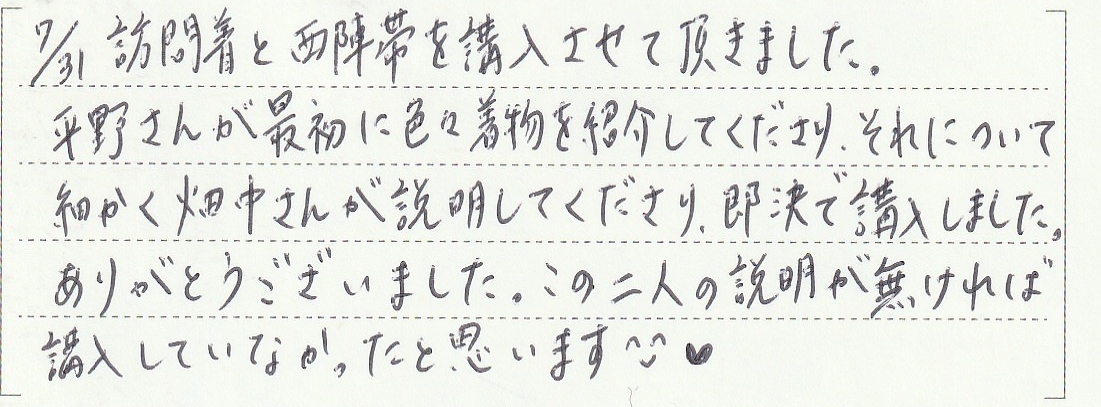 7/31 訪問着と西陣帯を講入させて頂きました。
平野さんが最初に色々着物を紹介してくださり、それについて
細かく畑中さんが説明してくださり、即決で講入しました。
ありがとうございました。この二人の説明が無ければ
講入していなかったと思います